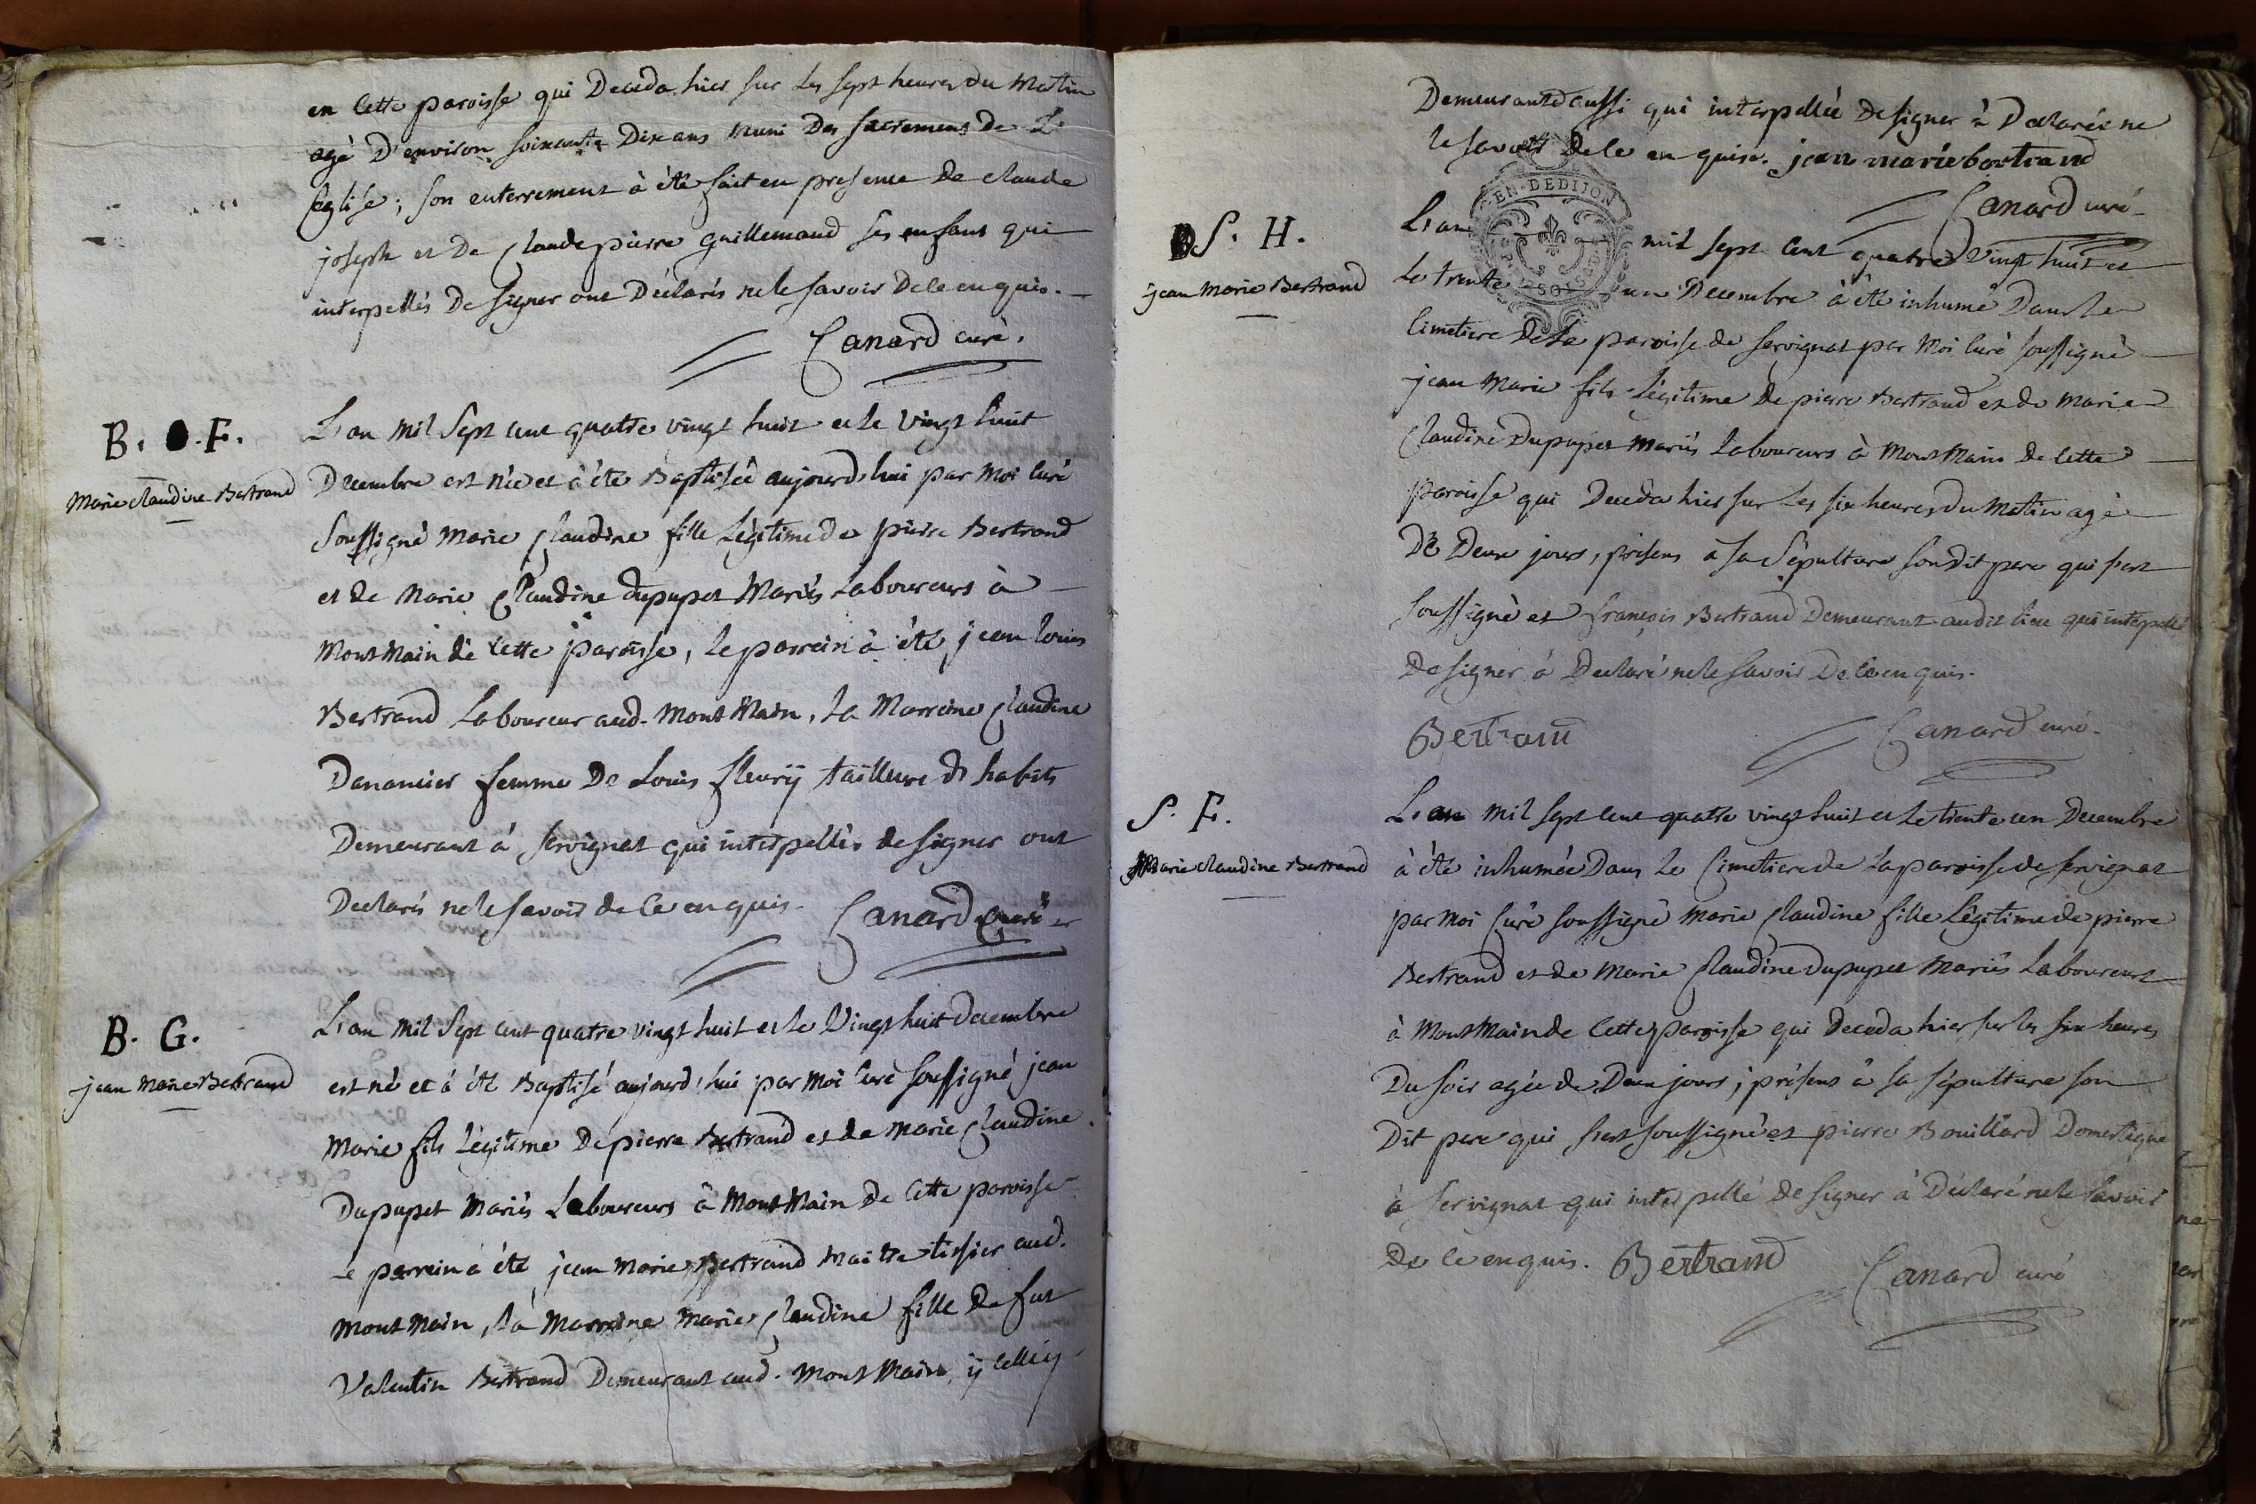 en cette paroisse qui Deceda hier sur les sept heures du Matin
agé D'environ soixante Dix ans muni Des sacremens de L'
Eglise ; son enterrement à été fait en presence de claude
joseph et De Claude pierre Guillemaud ses enfans qui
interpellés De signer ont Déclarés ne le savoir De ce enquis.
Canard curé.
B. F.
Marie Claudine Bertrand
L'an Mil Sept cent quatre vingt huit et le vingt huit
Decembre est née et à été Baptisée aujourd'hui par Moi Curé
Soussigné Marie Claudine fille Légitime de pierre Bertrand
et de Marie Claudine dupupet Mariés Laboureurs à
MontMain de cette paroisse, le parrein à été jean louis
Bertrand Laboureur aud. MontMain, la Marreine Claudine
Danancier femme De Louis fleurÿ tailleure d'habits
Demeurant à servignat qui interpellés de signer ont
Declarés ne le savoir de ce enquis. Canard Curé
B. G.
jean Marie Bertrand
L'an Mil Sept cent quatre vingt huit et le Vingt huit Decembre
est né et à été Baptisé aujourd'hui par Moi curé soussigné jean
Marie fils Légitime De pierre Bertrand et de Marie Claudine
Dupupet Mariés Laboureurs à MontMain de cette paroisse
Le parrein à été jean Marie Bertrand Maitre tissier aud.
MontMain, la Marreine Marie Claudine fille de fut
Valentin Bertrand Demeurant aud. MontMain, ÿ celle ÿ
Demeurante aussi qui interpellée De signer à Declarée ne
le savoir de ce enquise. jean marie bertrand
Canard curé
S. H.
jean Marie Bertrand
EN. DE DIJON
L'an mil sept cent quatre Vingt huit et
le trente un Decembre à été inhumé Dans le
Cimetiere De la paroisse de servignat par Moi Curé soussigné
jean Marie fils Légitime De pierre Bertrand et de Marie
Claudine Dupupet Mariés Laboureurs à MontMain de cette
paroisse qui Deceda hier sur Les six heures du Matin agé
De Deux jours, présens à sa Sépulture son Dit pere qui s'est
soussigné et françois Bertrand Demeurant audit lieu qui interpellé
De signer à Declaré ne le savoir De ce enquis.
Bertrand
Canard curé.
S. F.
Marie Claudine Bertrand
L'an Mil sept cent quatre vingt huit et le trente un Decembre
à été inhumée Dans Le Cimetiere de la paroisse de servignat
par Moi Curé soussigné Marie Claudine fille Légitime de pierre
Bertrand et de Marie Claudine Dupupet Mariés Laboureurs
à MontMain de Cette paroisse qui Deceda hier sur les six heures
Du soir agée de Deux jours ; présens à sa sépulture son
Dit pere qui s'est soussigné et pierre Bouillard Domestique
à servignat qui interpellé De signer à Déclaré ne le savoir
De ce enquis. Bertrand
Canard curé